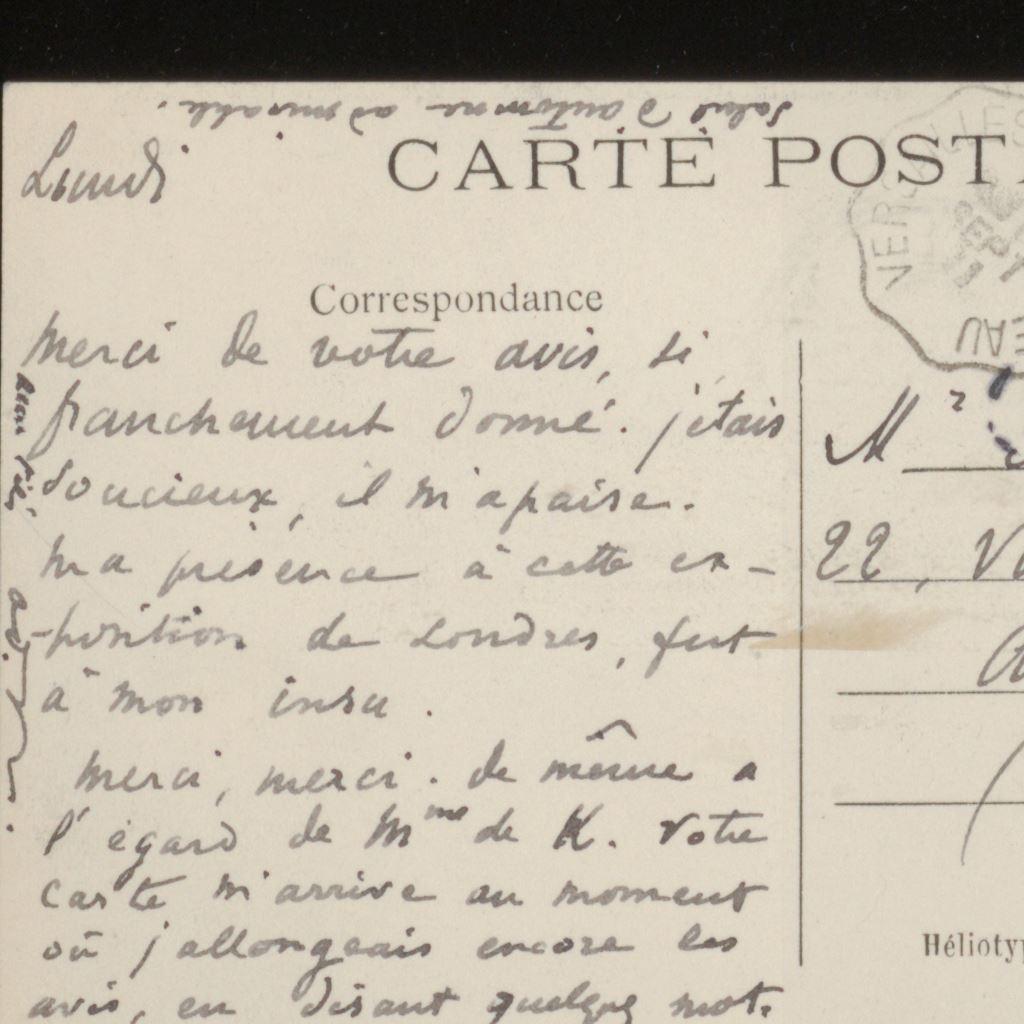 Soleil d'automne admirable.
CARTE POST
Lundi
VERSAILLES
SEP
EAU
Correspondance
Merci de votre avis, si
franchement donné. j'étais
soucieux, il m'apaise.
Ma présence à cette ex-
-position de Londres, fut
à mon insu.
Merci, merci. de même a
l'égard de Mme de K. Votre
carte m'arrive au moment
où j'allongeais encore les
avis, en disant quelque mot.
Mr
22, V
Héliotyp